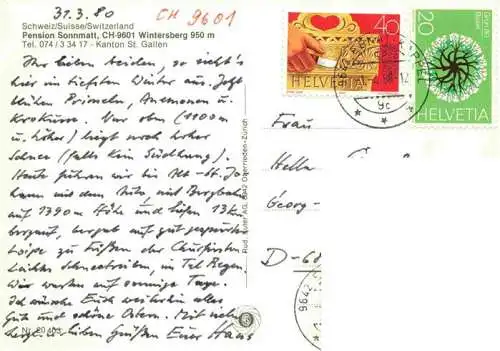 31.3.80 CH 9601
Schweiz/Suisse/Switzerland
Pension Sonnmatt, CH-9601 Wintersberg 950 m
Tel. 074 / 3 34 17 - Kanton St. Gallen
Ihr lieben beiden, so sieht's
hier im tiefsten Winter aus. Jetzt
blühen Primeln, Anemonen u.
Krokusse. Nur oben (1100m
u. höher) liegt noch hoher
Schnee (falls kein Südhang).
Heute fuhren wir bis Alt-St. Jo
hann mit dem Auto, mit Bergbahn
auf 1390 m Höhe und liefen 13 km
bergauf, bergab auf gut gespurter
Loipe zu Füßen der Churfirsten
Leichtes Schneetreiben, im Tal Regen.
Wir warten auf sonnige Tage.
Ich wünsche Euch weiterhin alles
Gute und schöne Ostern. Mit vielen
lieben Grüßen Euer Hans
Nr. 20
Rud. Suter AG, 8942 Oberrieden-Zürich
40
HELVETIA
20
HELVETIA
9C
Frau
Hella
Georg-
D-68
9642